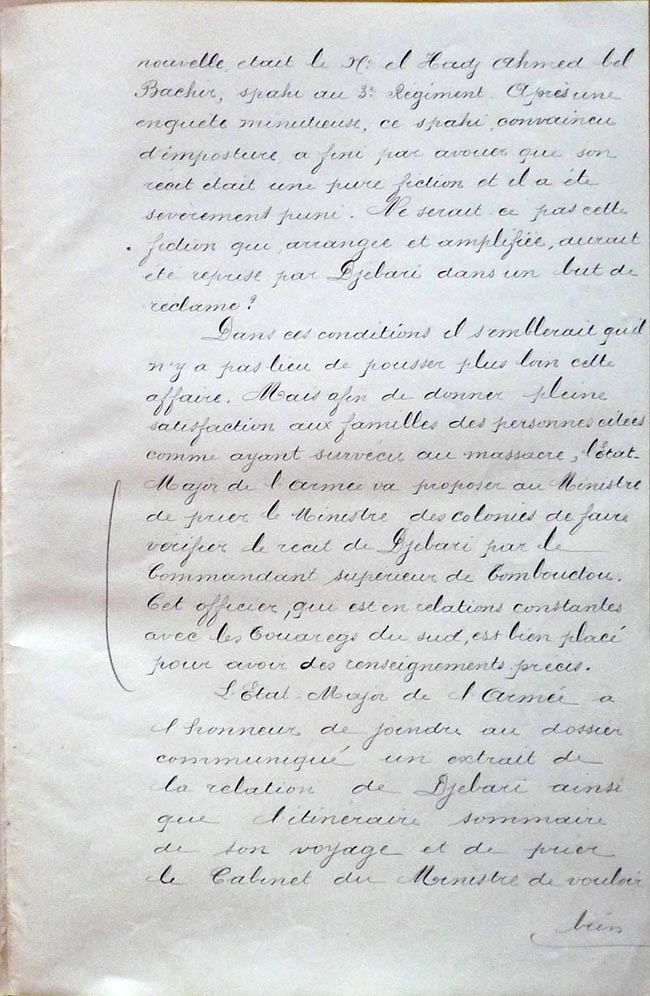 nouvelle était le Né el Hadj Ahmed bel
Bachir, spahi au 3e Régiment. Après une
enquête minutieuse, ce spahi, convaincu
d'imposture, a fini par avouer que son
récit était une pure fiction et il a été
sévèrement puni. Ne serait-ce pas cette
fiction qui, arrangée et amplifiée, aurait
été reprise par Djebari dans un but de
réclame?
Dans ces conditions il semblerait qu'il
n'y a pas lieu de pousser plus loin cette
affaire. Mais afin de donner pleine
satisfaction aux familles des personnes citées
comme ayant survécu au massacre, l'Etat-
Major de l'Armée va proposer au Ministre
de prier le Ministre des colonies de faire
vérifier le récit de Djebari par le
Commandant supérieur de Tombouctou.
Cet officier, qui est en relations constantes
avec les Touaregs du sud, est bien placé
pour avoir des renseignements précis.
L'Etat-Major de l'Armée a
l'honneur de joindre au dossier
communiqué un extrait de
la relation de Djebari ainsi
que l'itinéraire sommaire
de son voyage et de prier
le Cabinet du Ministre de vouloir
bien